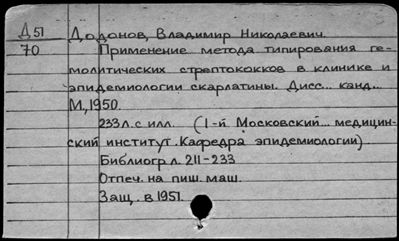 Д51 Додонов, Владимир Николаевич.
70 Применение метода типирования ге-
молитических стрептококков в клинике и
эпидемиологии скарлатины. Дисс... канд...
М., 1950.
233 л. с илл. (1-й Московский... медицин-
ский институт. Кафедра эпидемиологии).
Библиогр л. 211-233
Отпеч. на пиш. маш.
Защ. в 1951.